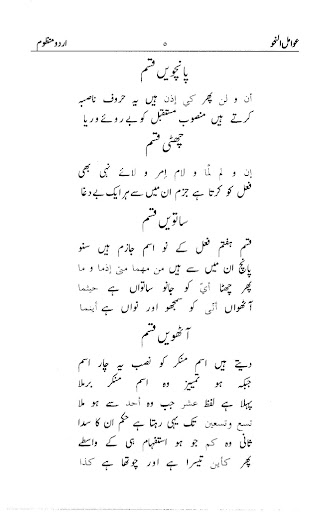 عوامل النحو ۵ اردو منظوم
پانچویں قسم
أن و لن پھر كي إذن ہیں یہ حروف ناصبہ
کرتے ہیں منصوب مستقبل کو بے روئے و ریا
چھٹی قسم
إن و لم لمّا و لام امر و لائے نہی بھی
فعل کو کرتا ہے جزم ان میں سے ہر ایک بے دغا
ساتویں قسم
قسم ہفتم فعل کے نو اسم جازم ہیں سنو
پانچ ان میں سے ہیں من مهما متى إذما و ما
پھر چھٹا أيّ کو جانو ساتواں ہے حيثما
آٹھواں أنّى کو سمجھو اور نواں ہے أينما
آٹھویں قسم
دیتے ہیں اسم منکر کو نصب یہ چار اسم
جبکہ ہو تمییز وہ اسم منکر برملا
پہلا ہے لفظ عشر جب وہ أحد سے ہو ملا
تسع وتسعين تک یہی رہتا ہے حکم ان کا سدا
ثانی وہ كم جو ہو استفہام ہی کے واسطے
پھر كأين تیسرا ہے اور چوتھا ہے كذا